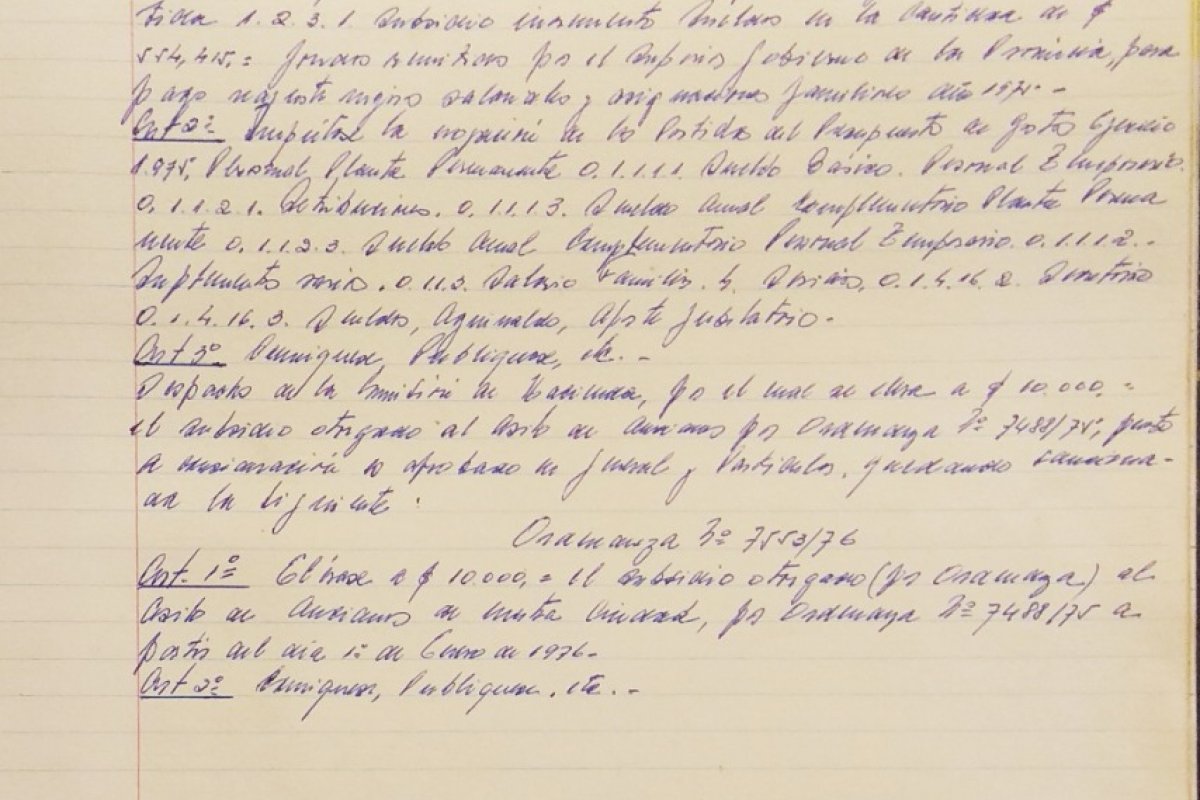 tida 1.2.3.1. Subsidio incremento Sueldos en la cantidad de $
554,415,= fondos remitidos por el Superior Gobierno de la Provincia, para
pago reajuste salariales y asignaciones familiares año 1975.-
Art 2º Impútese la erogación de las Partidas del Presupuesto de Gastos Ejercicio
1.975, Personal Planta Permanente 0.1.1.1.1. Sueldo Básico. Personal Temporario.
0.1.1.2.1. Retribuciones. 0.1.1.1.3. Sueldo Anual Complementario Planta Perma
nente 0.1.1.2.3. Sueldo Anual Complementario Personal Temporario. 0.1.1.1.2.-
Suplemento varios. 0.1.1.3. Salario Familiar. 0.1.4.16.2.
0.1.4.16.3. Sueldos, Aguinaldo, Aporte Jubilatorio.-
Art 3º Comuníquese, Publíquese, etc..-
Despacho de la Comisión de Hacienda, por el cual se eleva a $ 10.000,=
el subsidio otorgado al Asilo de Ancianos por Ordenanza Nº 7488/75, puesto
a consideración es aprobado en General y Particular, quedando sanciona-
da la siguiente:
Ordenanza Nº 7553/76
Art. 1º Elévase a $ 10.000,= el subsidio otorgado (por Ordenanza) al
Asilo de Ancianos de nuestra Ciudad, por Ordenanza Nº 7488/75 a
partir del día 1º de Enero de 1976-
Art 2º Comuníquese, Publíquese, etc..-